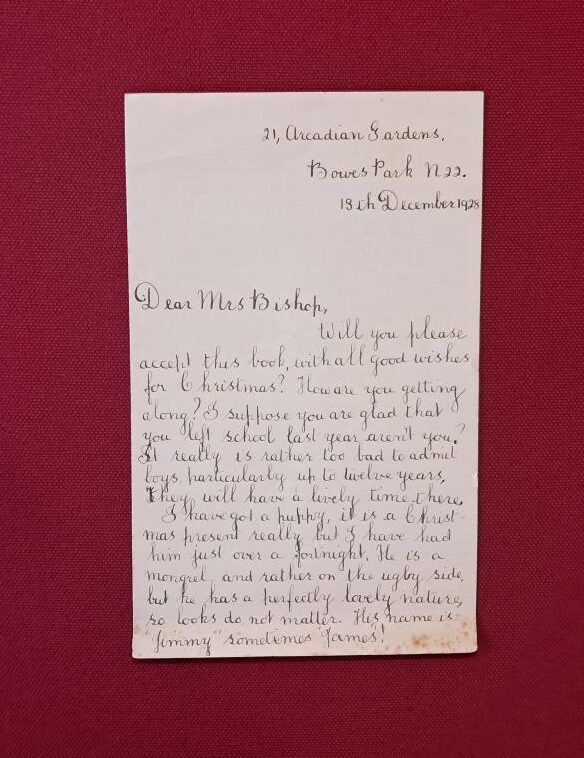 21, Arcadian Gardens,
Bowes Park N22.
18th December 1928
Dear Mrs Bishop,
Will you please
accept this book, with all good wishes
for Christmas? How are you getting
along? I suppose you are glad that
you left school last year aren't you?
It really is rather too bad to admit
boys, particularly up to twelve years.
They will have a lively time there.
I have got a puppy, it is a Christ-
mas present really but I have had
him just over a fortnight. He is a
mongrel, and rather on the ugby side,
but he has a perfectly lovely nature,
so looks do not matter. His name is
"Jimmy" sometimes "James"!